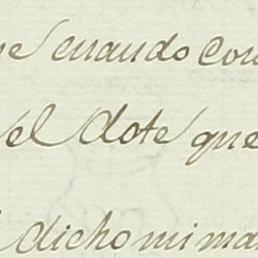 ue cuando con
el dote que
dicho mi mar